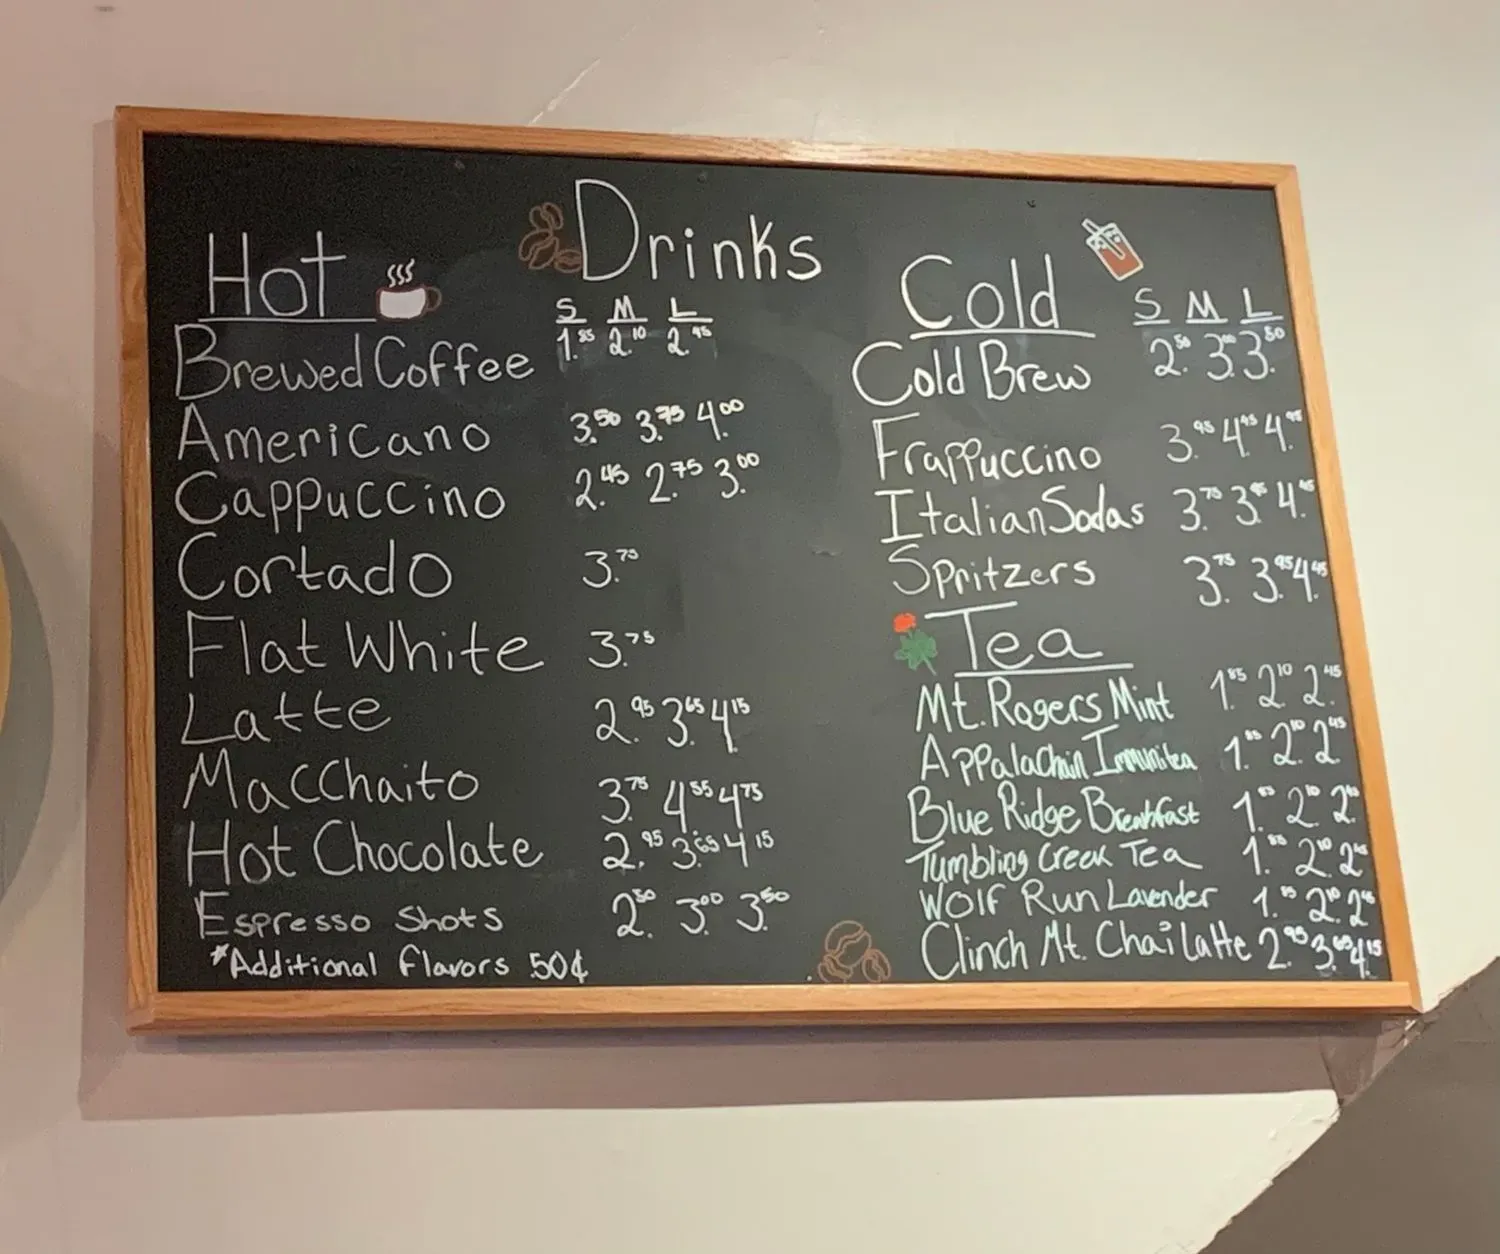 Drinks
Hot
S M L
Brewed Coffee 1.85 2.10 2.45
Americano 3.50 3.75 4.00
Cappuccino 2.45 2.75 3.00
Cortado 3.75
Flat White 3.75
Latte 2.95 3.65 4.15
Macchaito 3.75 4.55 4.75
Hot Chocolate 2.95 3.65 4.15
Espresso Shots 2.50 3.00 3.50
*Additional flavors .50¢
Cold S M L
Cold Brew 2.50 3.00 3.50
Frappuccino 3.95 4.45 4.95
Italian Sodas 3.75 3.95 4.45
Spritzers 3.75 3.95 4.45
Tea
Mt. Rogers Mint 1.85 2.10 2.45
Appalachain Immunitea 1.85 2.10 2.45
Blue Ridge Breakfast 1.85 2.10 2.45
Tumbling Creek Tea 1.85 2.10 2.45
Wolf Run Lavender 1.85 2.10 2.45
Clinch Mt. Chai Latte 2.95 3.65 4.15